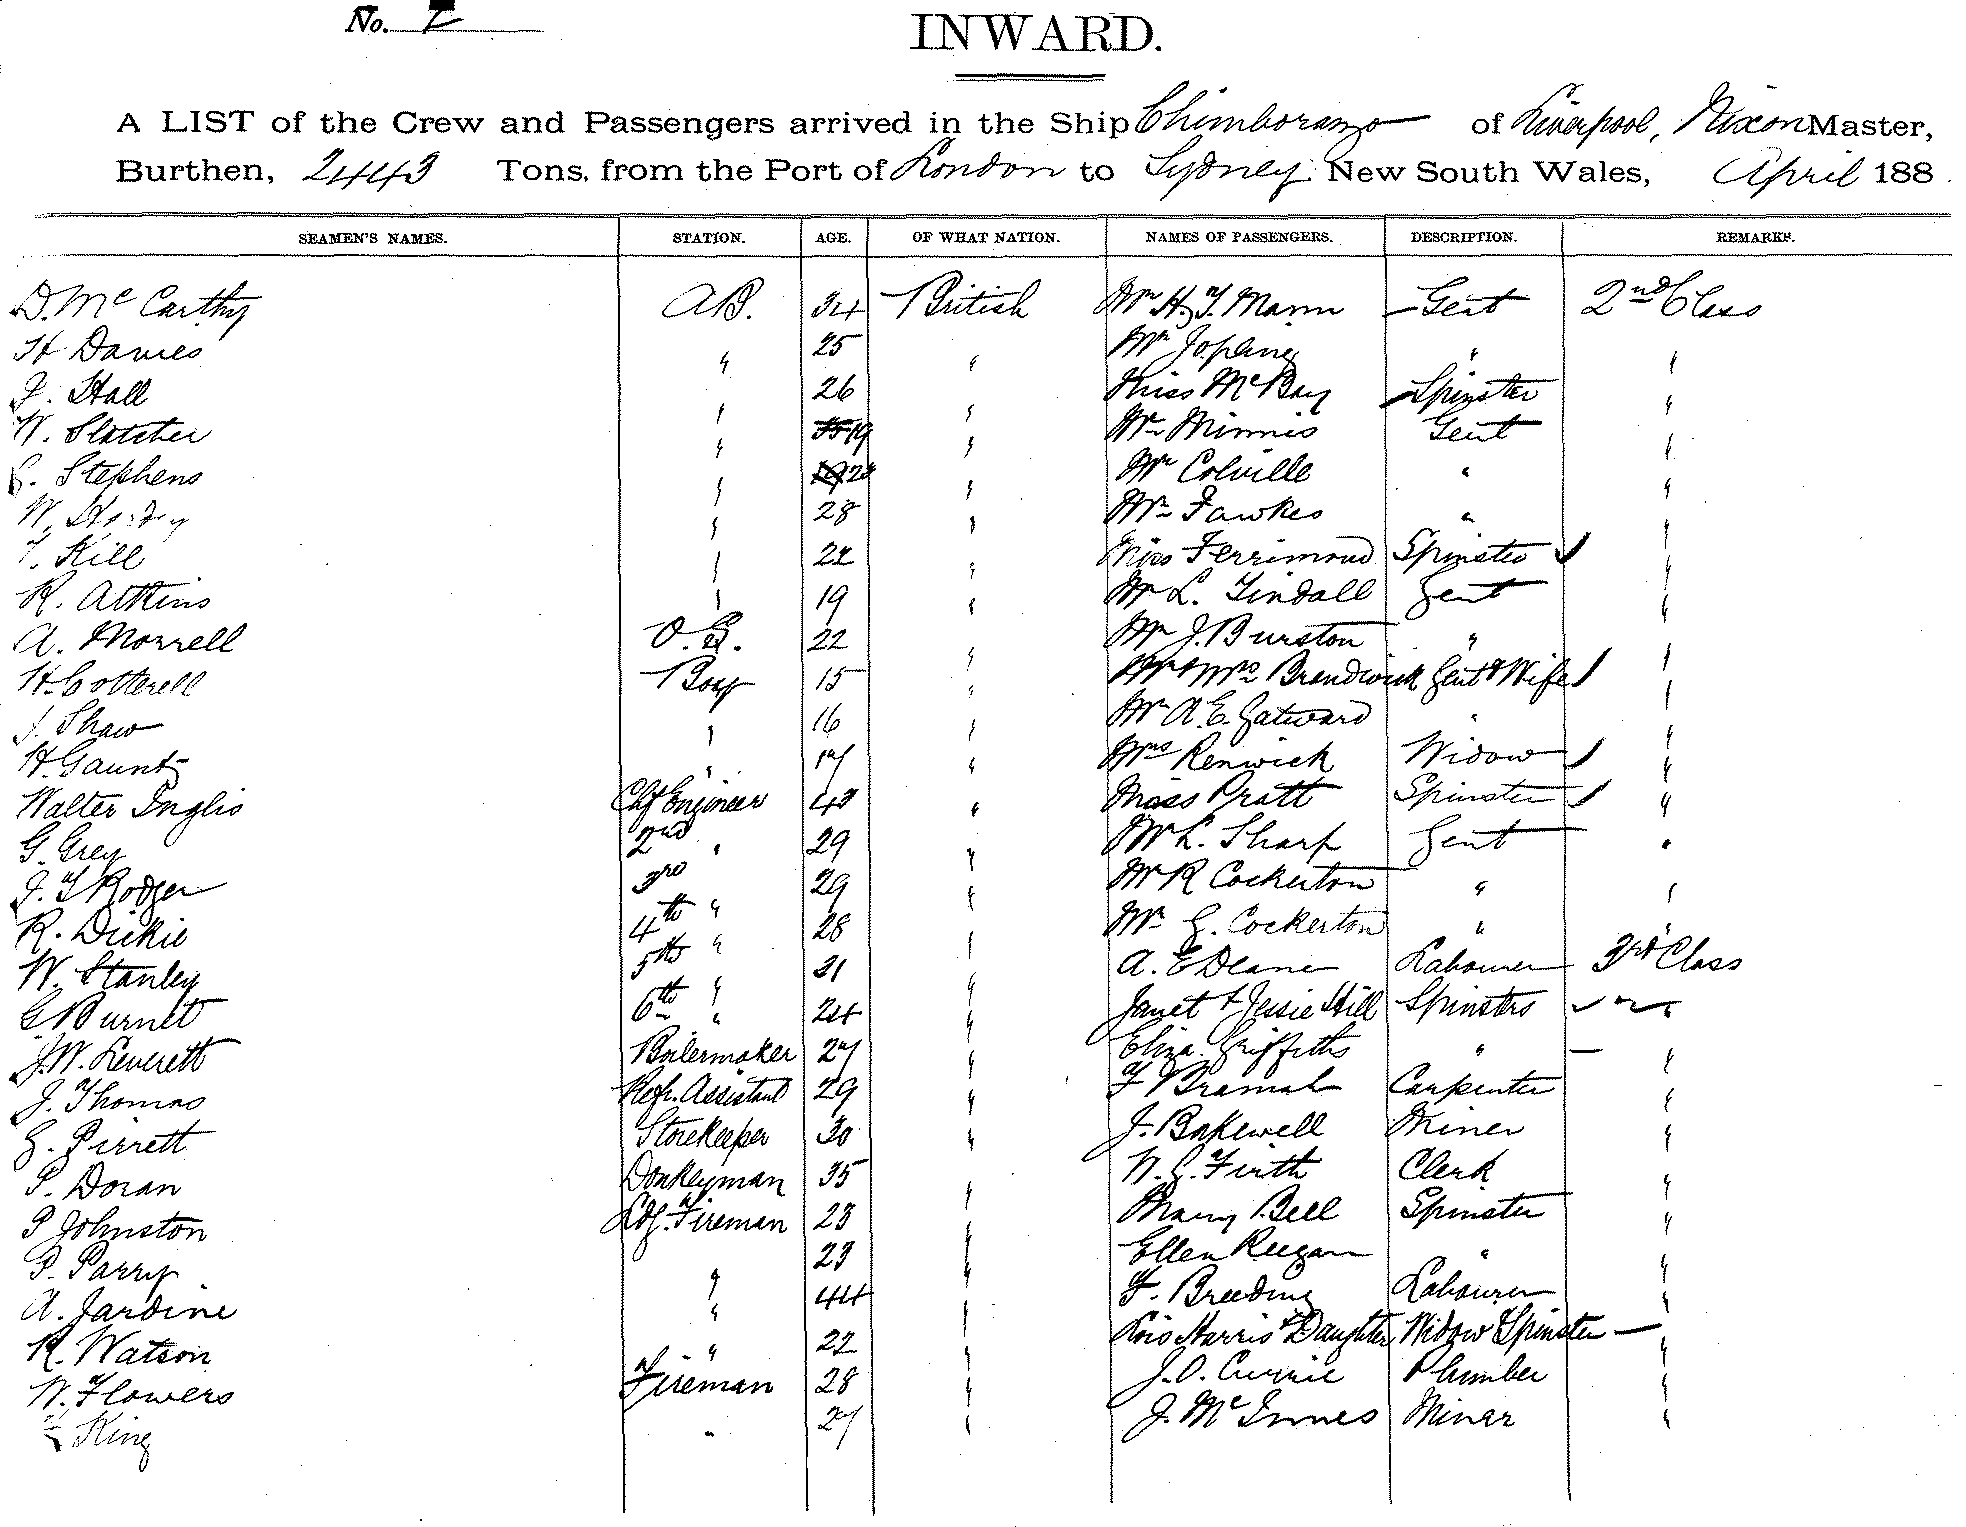 No.
INWARD.
A LIST of the Crew and Passengers arrived in the Ship Chimborazo of Liverpool, Nixon Master,
Burthen, 2443 Tons, from the Port of London to Sydney New South Wales, April 188
SEAMEN'S NAMES. STATION. AGE. OF WHAT NATION. NAMES OF PASSENGERS. DESCRIPTION. REMARKS.
D. McCarthy AB. 34 British Mr H. T. Mann Gent 2nd Class
H Davies " 25 " Mr Jopling " "
J. Hall " 26 " Miss McBay Spinster "
W. Slatcher " 19 " Mr Minnis Gent "
Stephens " " Mr Colville " "
W. " 28 " Mr Fawkes " "
Kill " 22 " Miss Ferrimond Spinster "
R. Atkins " 19 " Mr L. Tindall Gent "
A. Morrell O.S. 22 " Mr J. Burston " "
H. Cotterell Boy 15 " Mr & Mrs Brandwick Gent & Wife "
J. Shaw " 16 " Mr A. E. Gatward " "
H. Gaunt " 17 " Mrs Renwick Widow "
Walter Inglis Chf Engineer 43 " Miss Pratt Spinster "
G. Grey 2nd " 29 " Mr L. Sharp Gent "
J. T Rodger 3rd " 29 " Mr R Cockerton " "
R. Dickie 4th " 28 " Mr G. Cockerton " "
W. Stanley 5th " 31 " A. E Deane Labourer 3rd Class
G Burnet 6th " 24 " Janet & Jessie Hill Spinsters "
J. W. Leverett Boilermaker 27 " Eliza Griffiths " "
J. Thomas Refr. Assistant 29 " F Bramah Carpenter "
G. Pirrett Storekeeper 30 " J. Bakewell Miner "
P. Doran Donkeyman 35 " W. G. Firth Clerk "
P Johnston Ldg. Fireman 23 " Mary Bell Spinster "
P. Parry " 23 " Ellen Reegan " "
A. Jardine " 44 " F. Breeding Labourer "
R. Watson " 22 " Lois Harris & Daughter Widow & Spinster "
W. Flowers Fireman 28 " J. O. Currie Plumber "
King " 27 " J. McInnes Miner "